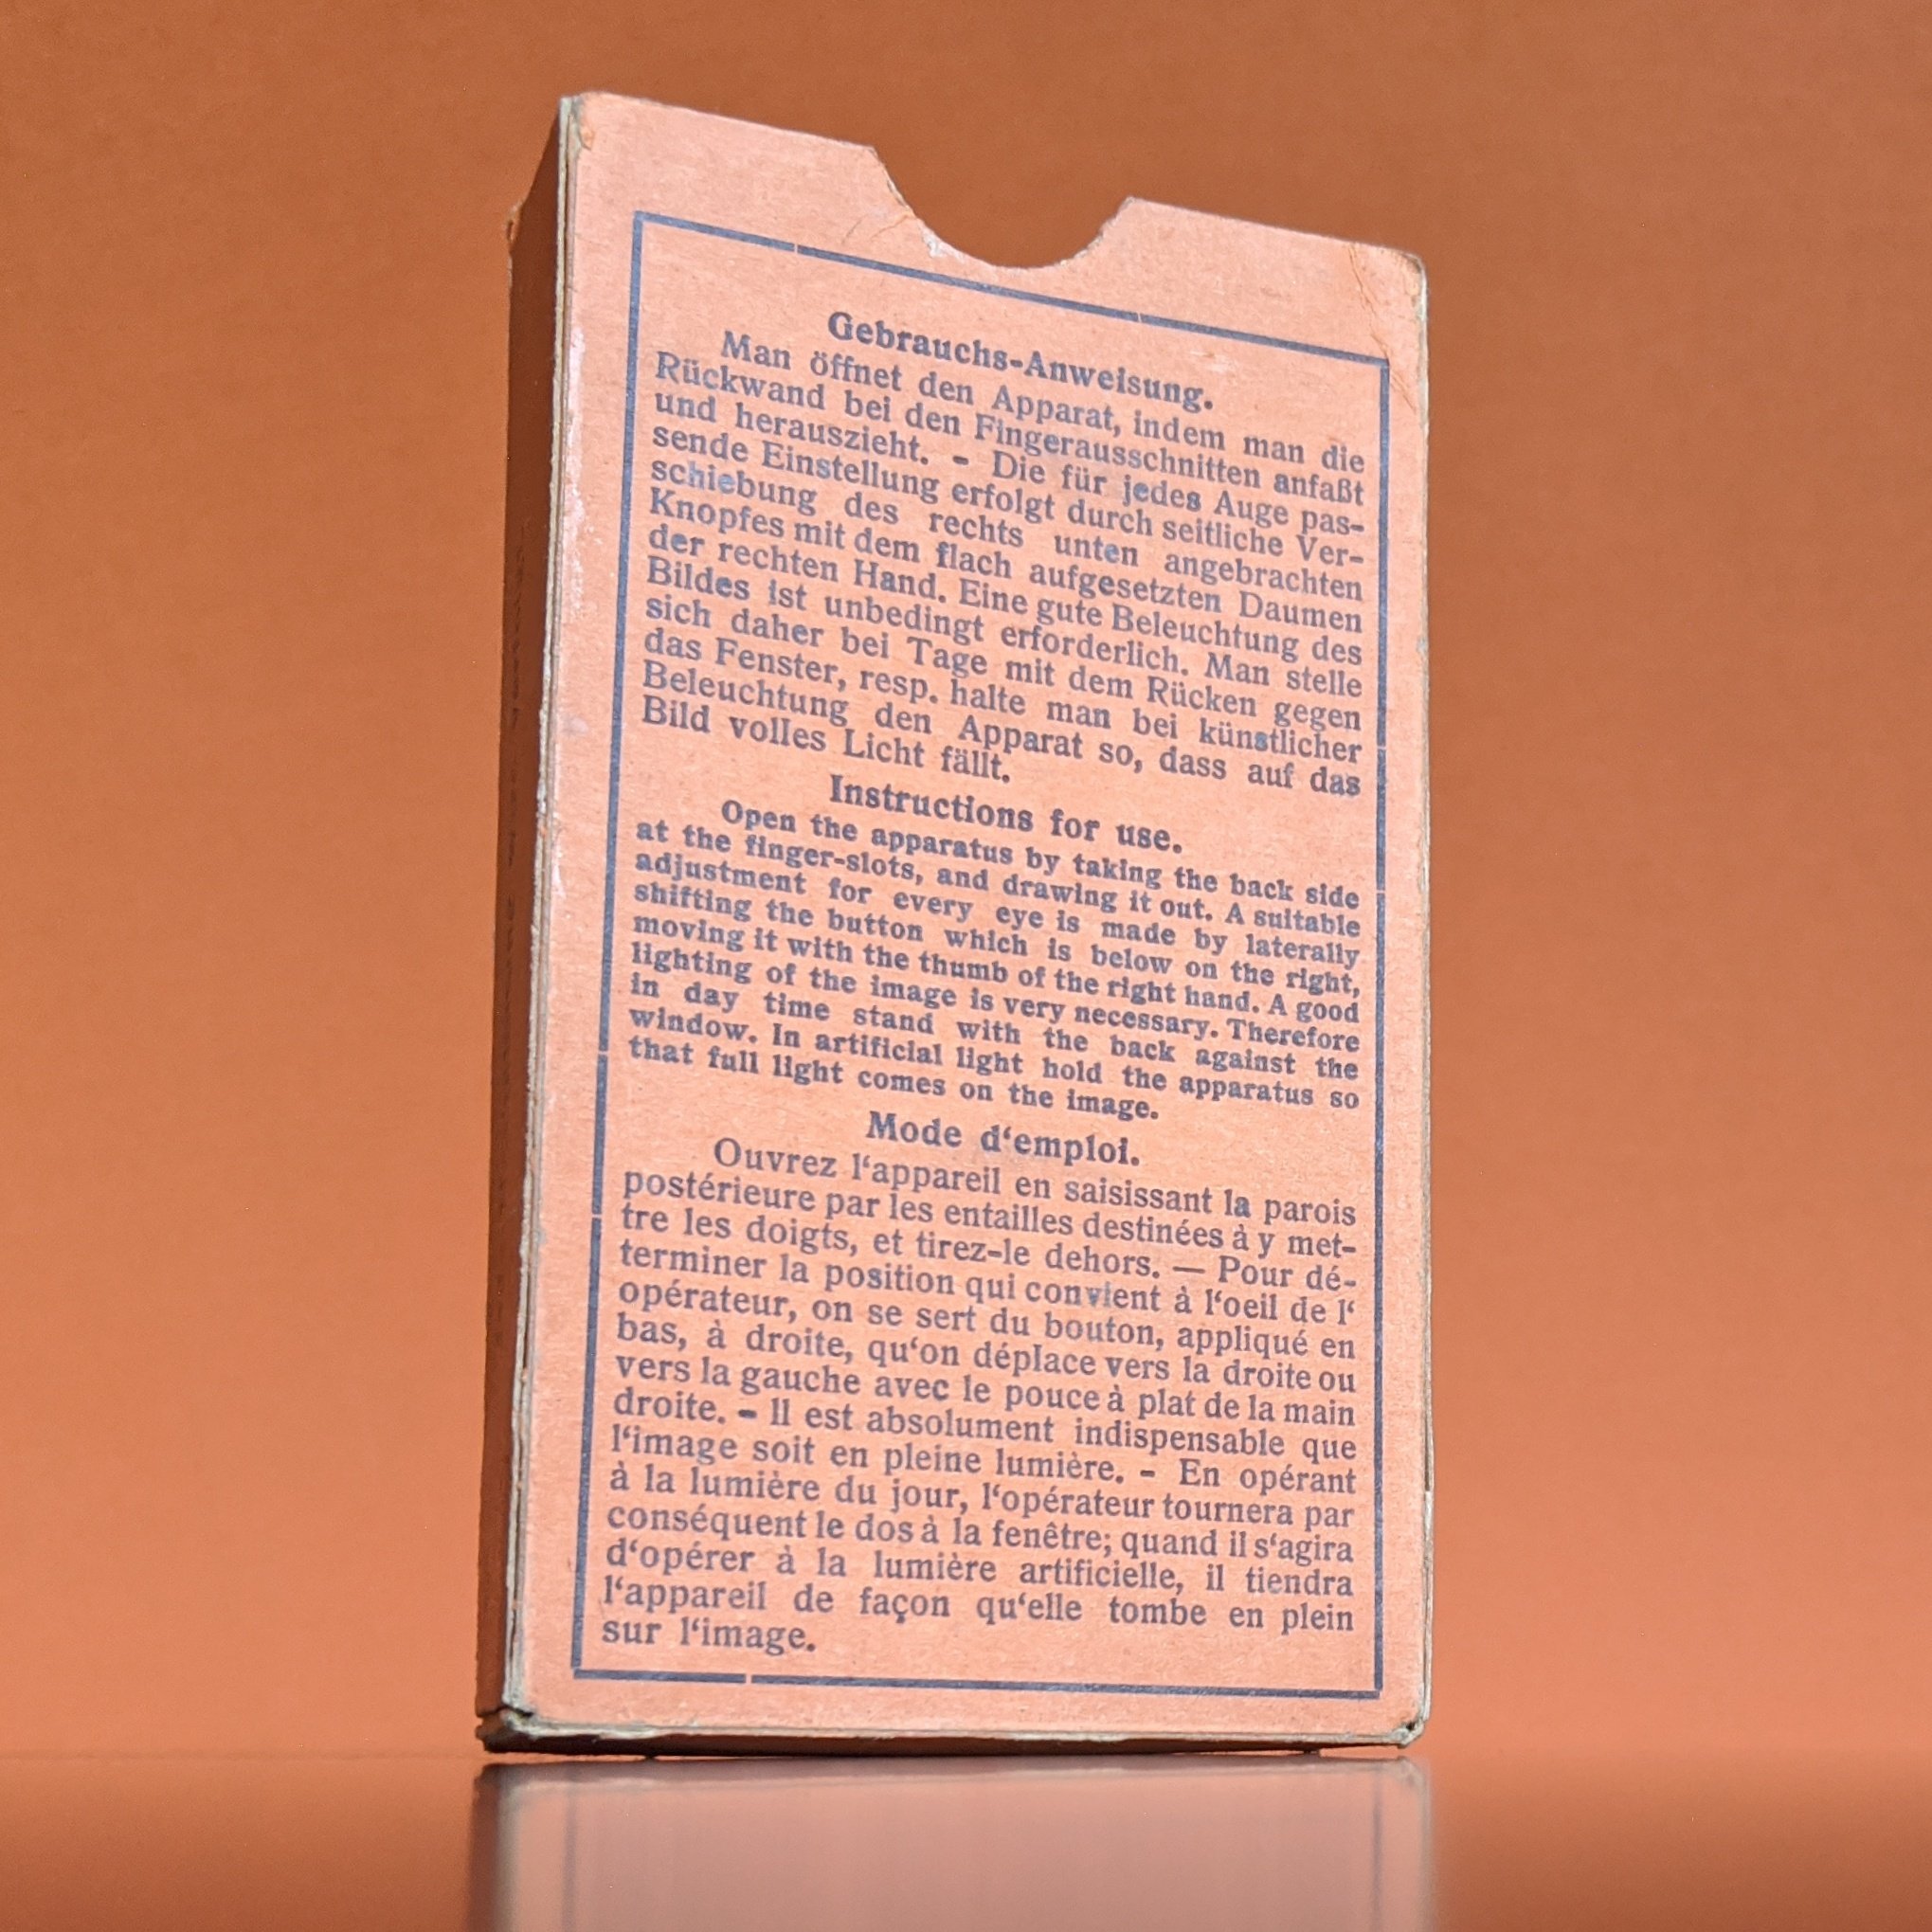 Gebrauchs-Anweisung.
Man öffnet den Apparat, indem man die
Rückwand bei den Fingerausschnitten anfaßt
und herauszieht. - Die für jedes Auge pas-
sende Einstellung erfolgt durch seitliche Ver-
schiebung des rechts unten angebrachten
Knopfes mit dem flach aufgesetzten Daumen
der rechten Hand. Eine gute Beleuchtung des
Bildes ist unbedingt erforderlich. Man stelle
sich daher bei Tage mit dem Rücken gegen
das Fenster, resp. halte man bei künstlicher
Beleuchtung den Apparat so, dass auf das
Bild volles Licht fällt.
Instructions for use.
Open the apparatus by taking the back side
at the finger-slots, and drawing it out. A suitable
adjustment for every eye is made by laterally
shifting the button which is below on the right,
moving it with the thumb of the right hand. A good
lighting of the image is very necessary. Therefore
in day time stand with the back against the
window. In artificial light hold the apparatus so
that full light comes on the image.
Mode d‘emploi.
Ouvrez l‘appareil en saisissant la parois
postérieure par les entailles destinées à y met-
tre les doigts, et tirez-le dehors. — Pour dé-
terminer la position qui convient à l‘oeil de l‘
opérateur, on se sert du bouton, appliqué en
bas, à droite, qu‘on déplace vers la droite ou
vers la gauche avec le pouce à plat de la main
droite. - Il est absolument indispensable que
l‘image soit en pleine lumière. - En opérant
à la lumière du jour, l‘opérateur tournera par
conséquent le dos à la fenêtre; quand il s‘agira
d‘opérer à la lumière artificielle, il tiendra
l‘appareil de façon qu‘elle tombe en plein
sur l‘image.